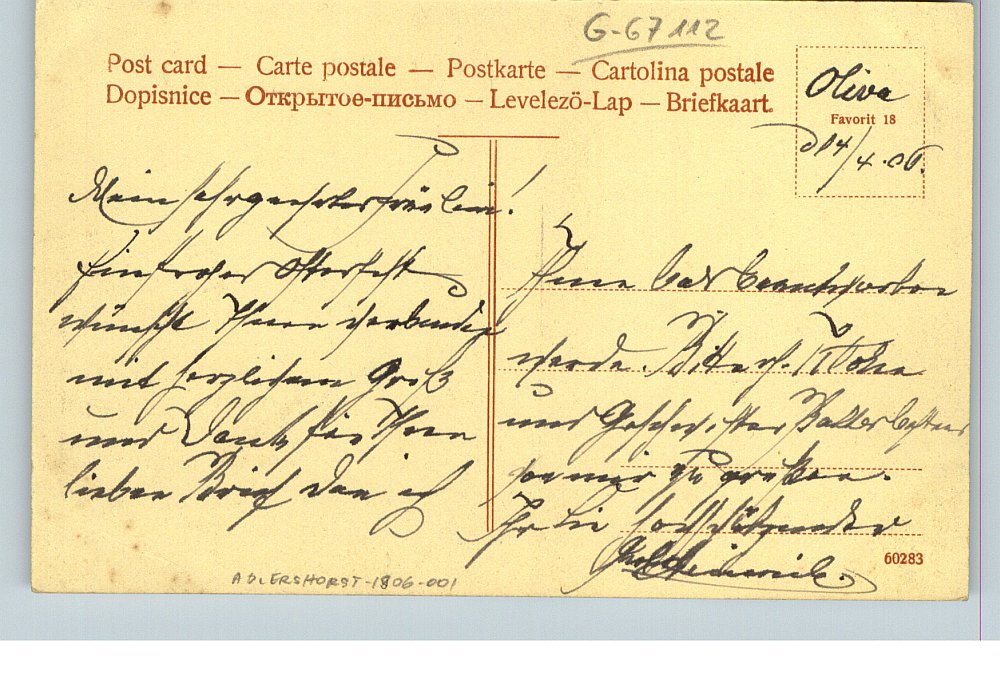 G-67112
Post card — Carte postale — Postkarte — Cartolina postale
Dopisnice — Открытое-письмо — Levelezö-Lap — Briefkaart.
Oliva
Favorit 18
d 14/4.06.
Mein sehrgeehrtes Fräulein!
Ein frohes Osterfest
wünscht Ihnen verbunden
mit herzlichem Gruß
und Dank für Ihren
lieben Brief den ich
Ihnen bald beantworten
werde. Bitte
und Geschwister
von mir zu grüßen.
Ihr Sie hochschätzender
60283
ADLERSHORST-1906-001